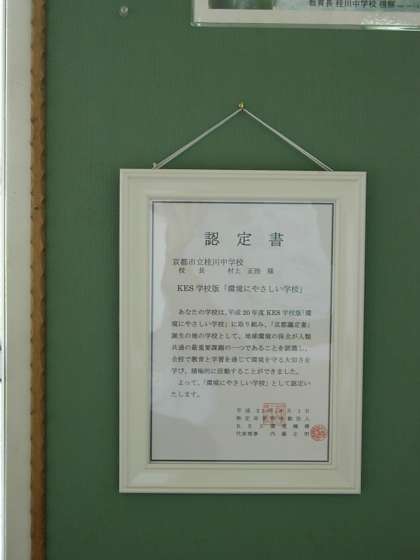 教育長 桂川中学校 視察
認定書
京都市立桂川中学校
校 長 村上 正 様
KES学校版「環境にやさしい学校」
あなたの学校は、平成20年度KES学校版「環
境にやさしい学校」に取り組み、「京都議定書」
誕生の地の学校として、地球環境の保全が人類
共通の最重要課題の一つであることを認識し、
全校で教育と学習を通じて環境を守る大切さを
学び、積極的に活動することができました。
よって、「環境にやさしい学校」として認定い
たします。
平成 月 1日
特定非営利活動法人
KES環境機構
代表理事 内藤正明